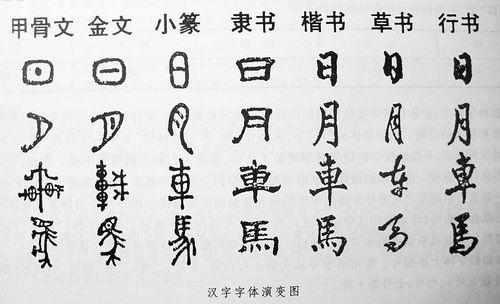 甲骨文 金文 小篆 隶书 楷书 草书 行书
日 日 日 日 日 日 日
月 月 月 月 月 月 月
車 車 車 車 車 车 車
馬 馬 馬 馬 馬 马 馬
汉字字体演变图